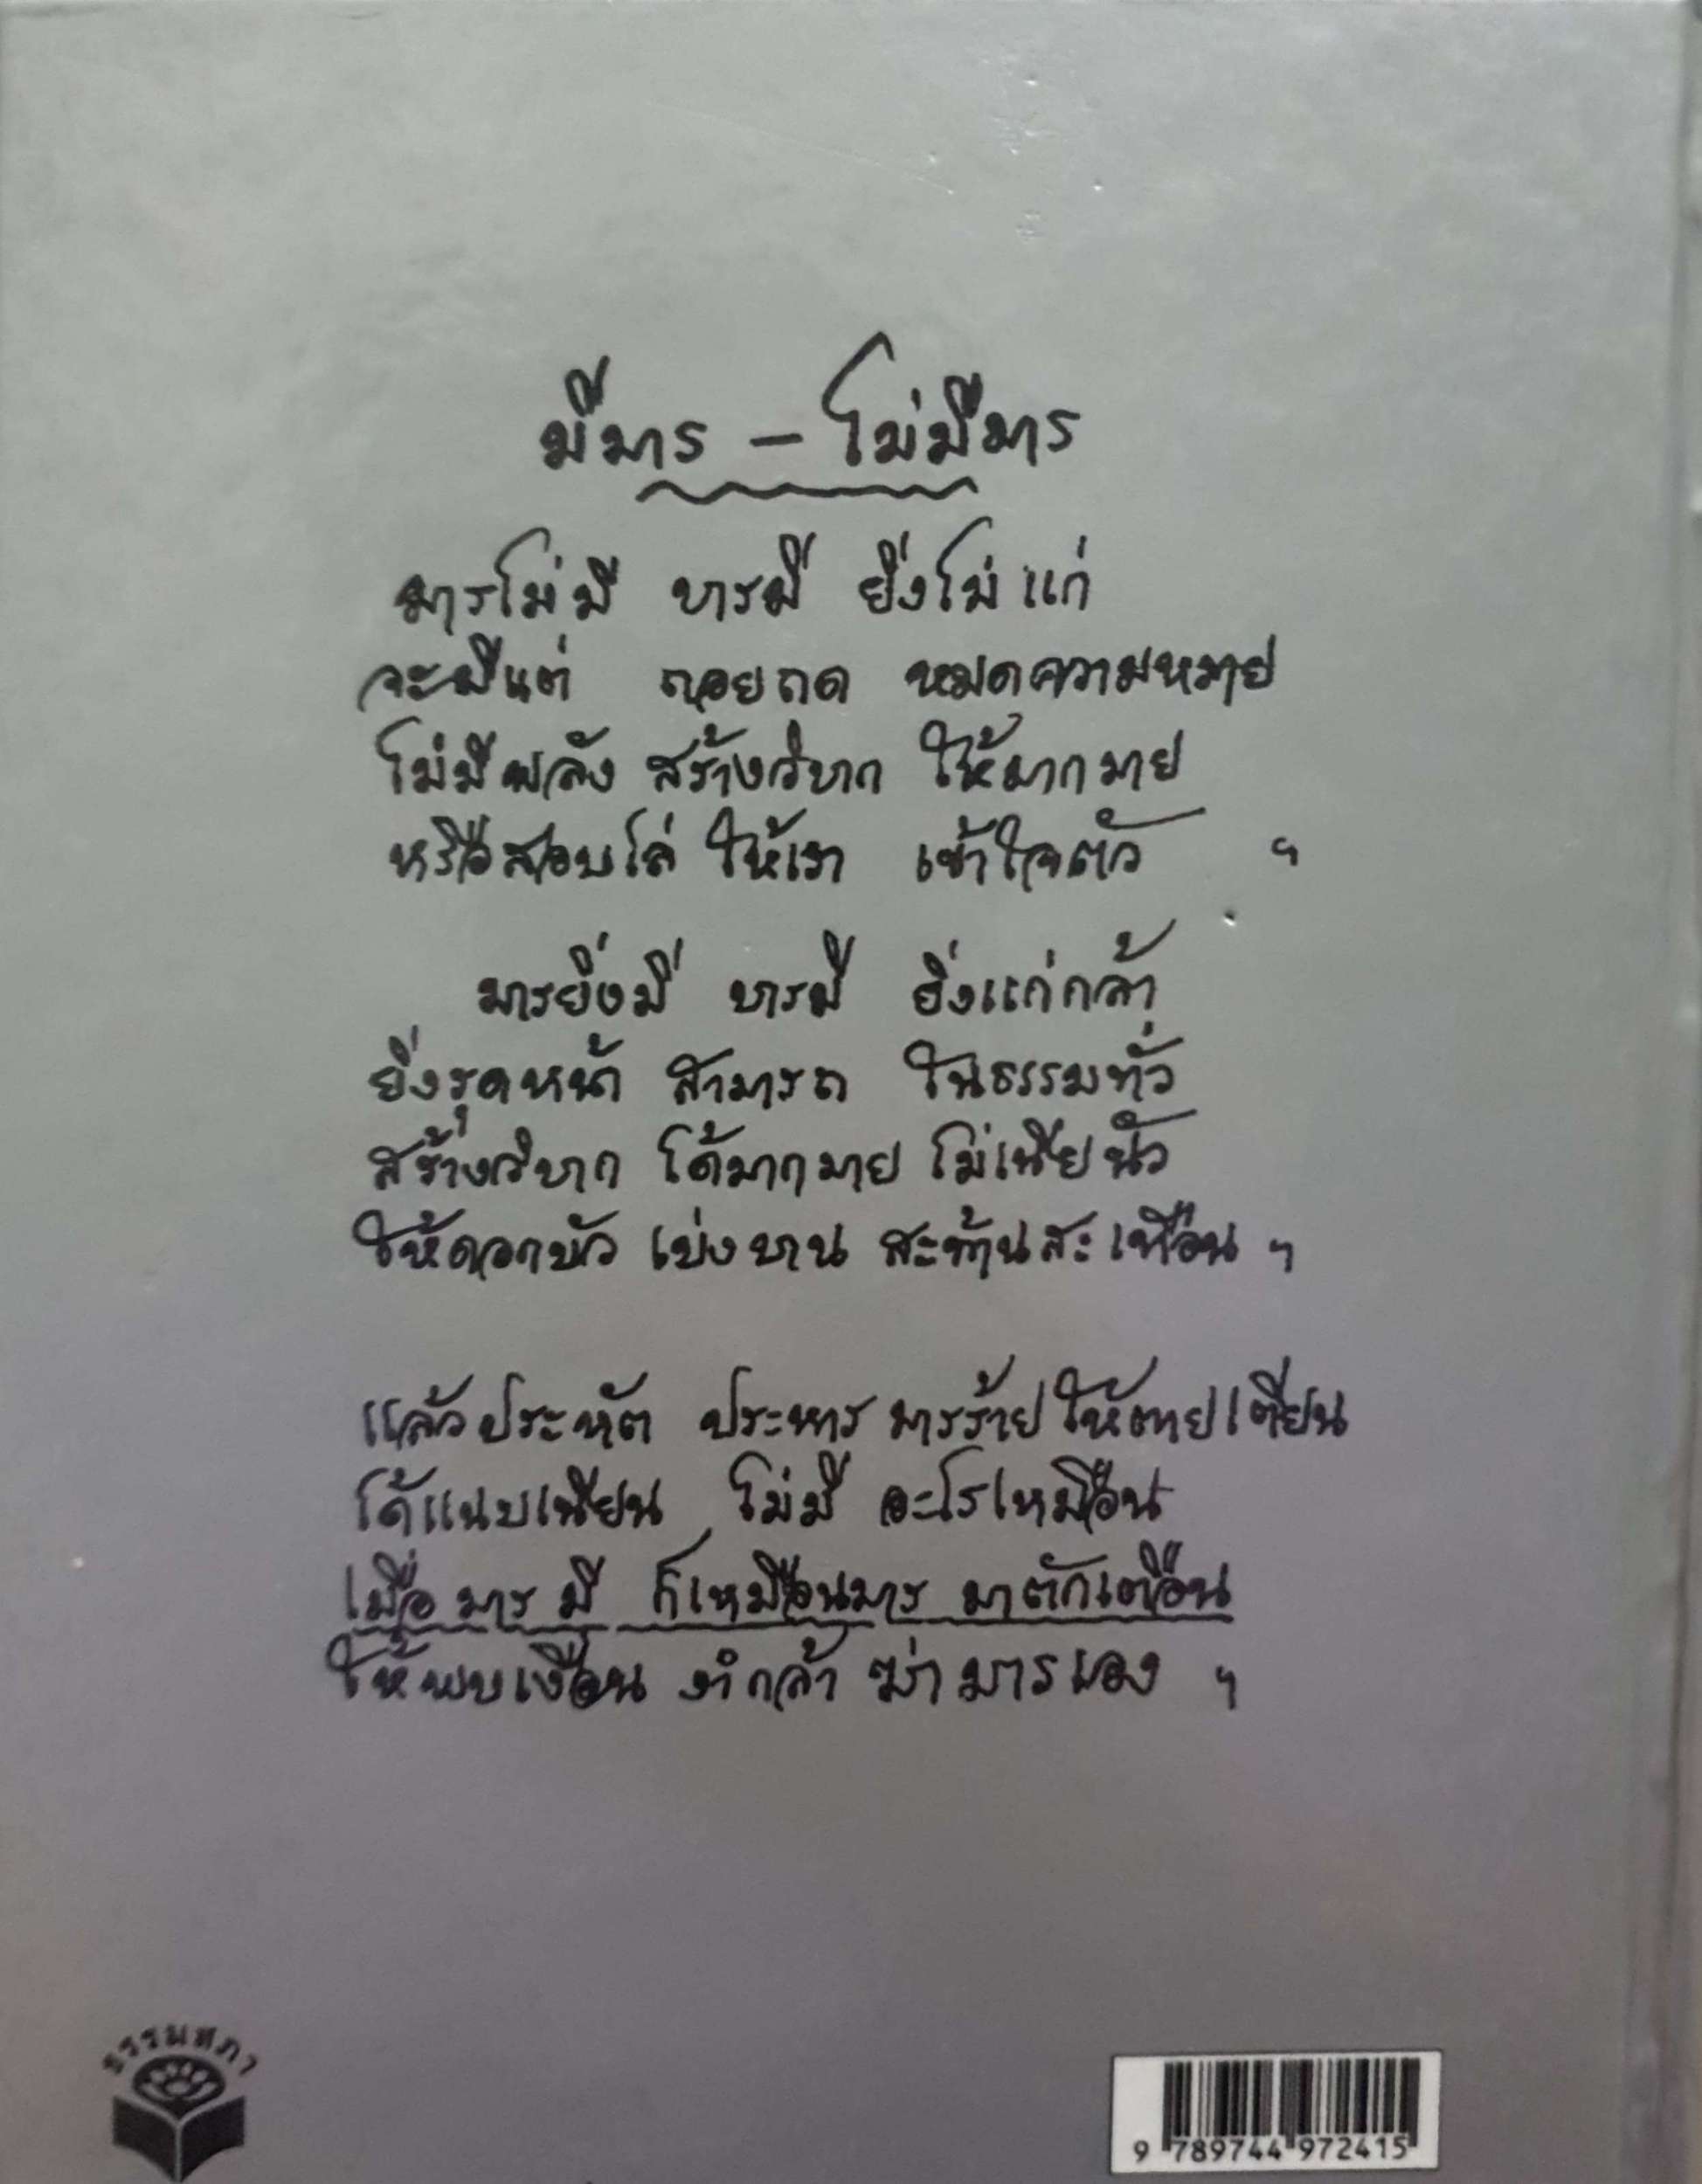 มีมาร – ไม่มีมาร
มารไม่มี บารมี ยิ่งไม่แก่
จะมีแต่ ถอยถด หมดความหมาย
ไม่มีพลัง สร้างวิบาก ให้มากมาย
หรือสอบไล่ ให้เรา เข้าใจตัว ฯ
มารยิ่งมี บารมี ยิ่งแก่กล้า
ยิ่งรุดหน้า สามารถ ในธรรมทั่ว
สร้างวิบาก ได้มากมาย ไม่เนียนัว
ให้ดอกบัว เบ่งบาน สะท้านสะเทือน ฯ
แล้วประหัต ประหาร มารร้ายให้ตายเตียน
ได้แนบเนียน ไม่มี อะไรเหมือน
เมื่อ มาร มี ก็เหมือนมาร มาตักเตือน
ให้พบเงื่อน งำกล้า ฆ่ามารเอง ฯ
ธรรมสภา
9 789744 972415